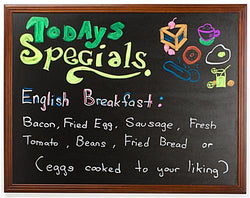 Todays
Specials.
English Breakfast:
Bacon, Fried Egg, Sausage, Fresh
Tomato, Beans, Fried Bread or
(eggs cooked to your liking)